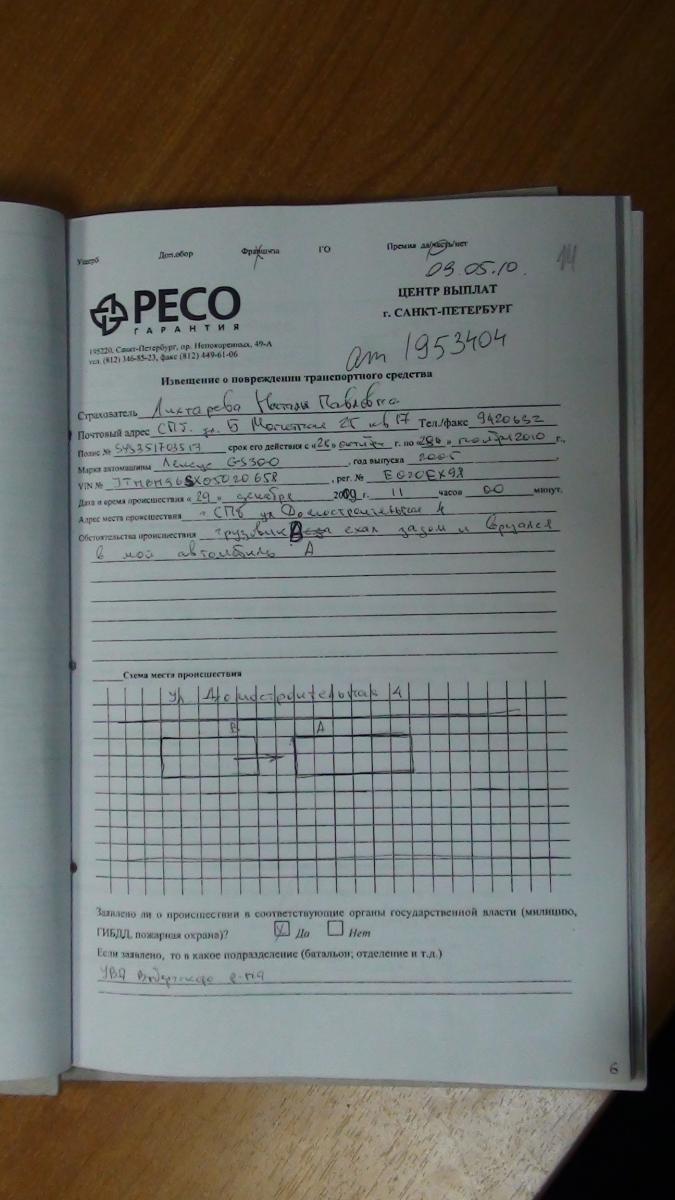 Ущерб Доп.обор Франшиза ГО Премия да/часть/нет
14
09.05.10.
РЕСО
ГАРАНТИЯ
ЦЕНТР ВЫПЛАТ
г. САНКТ-ПЕТЕРБУРГ
195220, Санкт-Петербург, пр. Непокоренных, 49-А
тел. (812) 346-85-23, факс (812) 449-61-06
ат 1953404
Извещение о повреждении транспортного средства
Страхователь Лихтарева Павловна
Почтовый адрес СПб. ул. Б кв 17 Тел./факс 9420632
Полис № срок его действия с «26» октября г. по 2010 г.,
Марка автомашины Лексус GS300, год выпуска 2005,
VIN № , рег. № Е020ЕХ98
Дата и время происшествия «29» декабря 2009 г. 11 часов 00 минут.
Адрес места происшествия г СПб ул Домостроительная 4
Обстоятельства происшествия грузовик В ехал задом и врезался
в мой автомобиль А
Схема места происшествия
ул Домостроительная 4
В А
Заявлено ли о происшествии в соответствующие органы государственной власти (милицию,
ГИБДД, пожарная охрана)? Да Нет
Если заявлено, то в какое подразделение (батальон; отделение и т.д.)
УВД Выборгского р-на
6